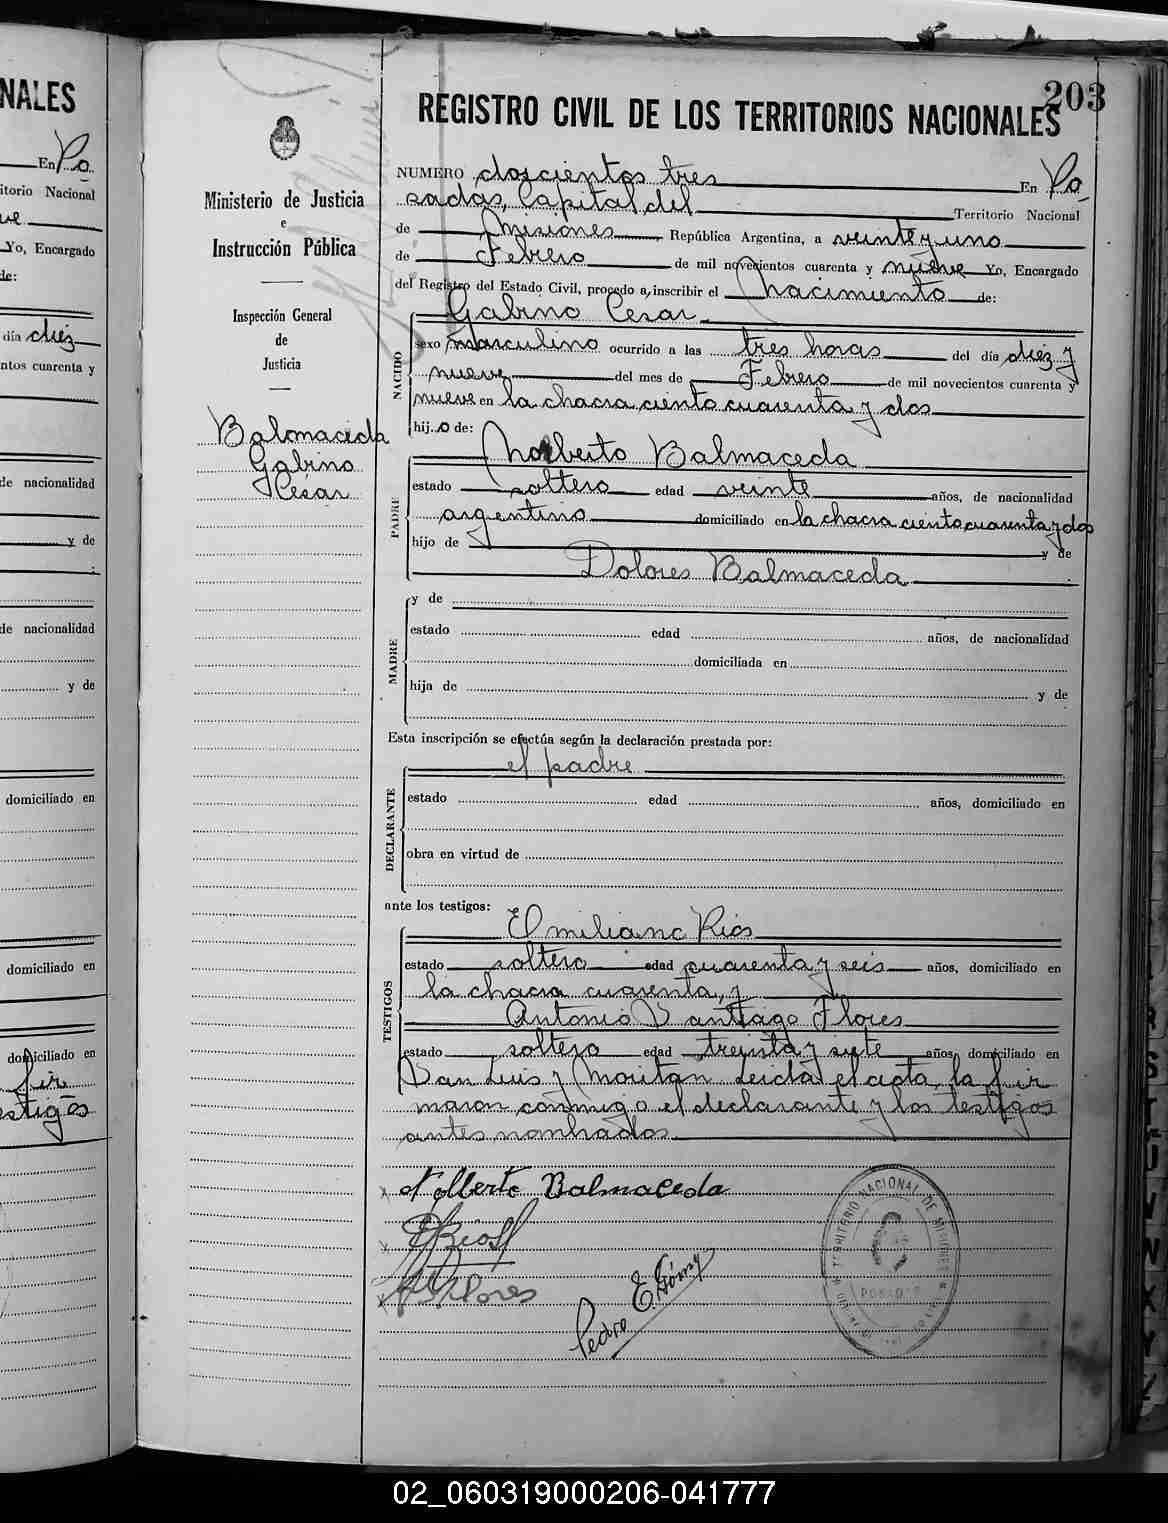 NALES
En Po
itorio Nacional
Yo, Encargado
de:
día diez
ntos cuarenta y
de nacionalidad
y de
de nacionalidad
y de
domiciliado en
domiciliado en
domiciliado en
fir
estigos
203
REGISTRO CIVIL DE LOS TERRITORIOS NACIONALES
Ministerio de Justicia
e
Instrucción Pública
Inspección General
de
Justicia
Balmaceda
Gabino
César
NUMERO doscientos tres En Po
sadas, Capital del Territorio Nacional
de Misiones República Argentina, a veinte y uno
de Febrero de mil novecientos cuarenta y nueve Yo, Encargado
del Registro del Estado Civil, procedo a inscribir el nacimiento de:
NACIDO
Gabino Cesar
sexo masculino ocurrido a las tres horas del día diez y
nueve del mes de Febrero de mil novecientos cuarenta y
nueve en la chacra ciento cuarenta y dos
hij o de:
PADRE
Norberto Balmaceda
estado soltero edad veinte años, de nacionalidad
argentino domiciliado en la chacra ciento cuarenta y dos
hijo de y de
Dolores Balmaceda
MADRE
y de
estado edad años, de nacionalidad
domiciliada en
hija de y de
Esta inscripción se efectúa según la declaración prestada por:
el padre
DECLARANTE
estado edad años, domiciliado en
obra en virtud de
ante los testigos:
TESTIGOS
Emiliano Ríos
estado soltero edad cuarenta y seis años, domiciliado en
la chacra cuarenta, y
Antonio Santiago Flores
estado soltero edad treinta y siete años, domiciliado en
San Luis y Moritan Leída el acta, la fir
maron conmigo el declarante y los testigos
antes nombrados
Nolberto Balmaceda
E Rios
A S Flores
Pedro E. Gómez
TERRITORIO NACIONAL DE MISIONES
POSADAS
02_060319000206-041777